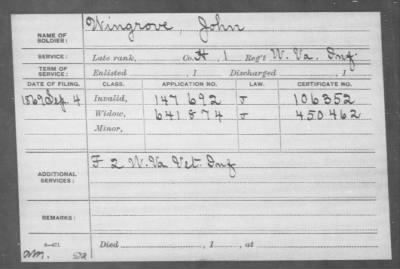 NAME OF SOLDIER: Wingrove, John
SERVICE: Late rank, Co. H, 1 Reg't W. Va. Inf.
TERM OF SERVICE: Enlisted , 1 Discharged , 1
DATE OF FILING. CLASS. APPLICATION NO. LAW. CERTIFICATE NO.
1869 Sep. 4 Invalid, 147 692 J 106352
Widow, 641874 J 450462
Minor,
ADDITIONAL SERVICES: F 2 W. Va Vet. Inf
REMARKS:
Died , 1 , at